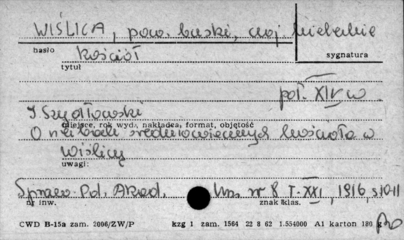 WIŚLICA, pow. buski, woj. kieleckie
hasło
sygnatura
kościół
tytuł
poł. XIV w.
J Szydłowski
miejsce, rok wyd., nakładca, format, objętość
O nieznan średniowiecznych kościoła w
Wiślicy
uwagi:
Spraw. Pol. Akad. Um. nr 8 T. XXI, 1916, s. 10-11
nr inw.
znak klas.
CWD B-15a zam. 2006/ZW/P kzg 1 zam. 1564 22 8 62 1.554000 A1 karton 180 g